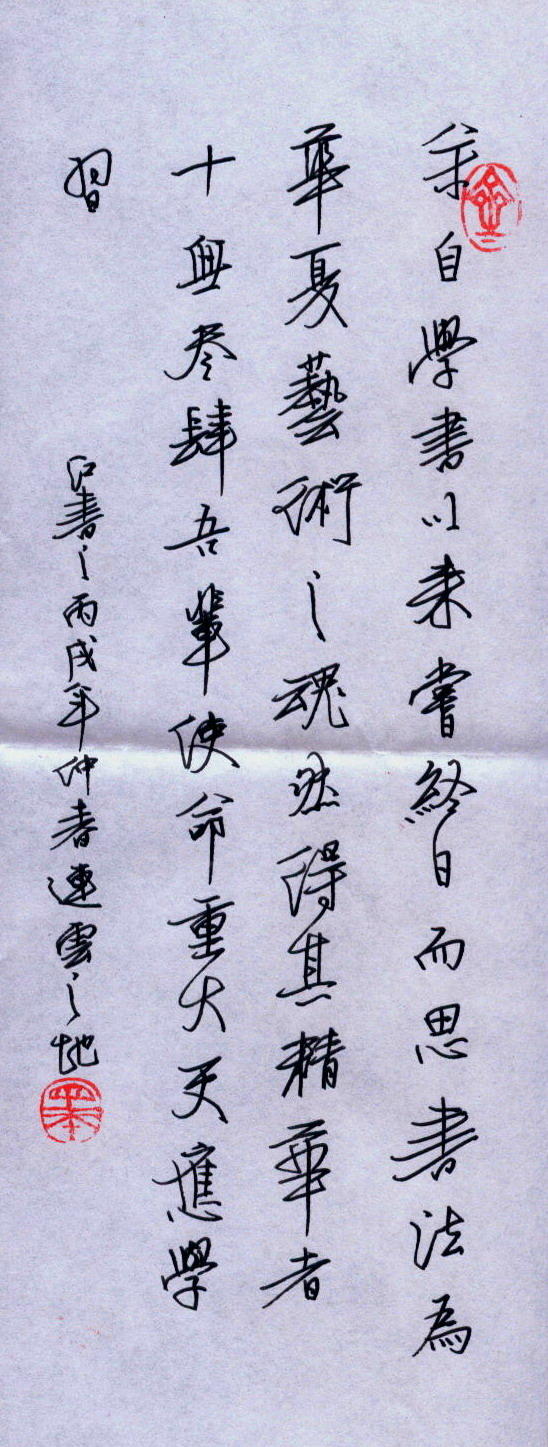 余自學書以来嘗終日而思書法為
華夏藝術之魂然得其精華者
十無叄肆吾輩使命重大更應學
習
江書之丙戌年仲春連雲之地